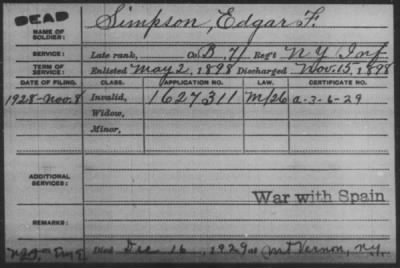 DEAD
NAME OF SOLDIER: Simpson, Edgar F.
SERVICE: Late rank, Co. B, 71 Reg't N.Y. Inf
TERM OF SERVICE: Enlisted May 2, 1898 Discharged Nov. 15, 1898
DATE OF FILING. CLASS. APPLICATION NO. LAW. CERTIFICATE NO.
1928-Nov. 8 Invalid, 1627311 a-3-6-29
Widow,
Minor,
ADDITIONAL SERVICES:
War with Spain
REMARKS:
Died Dec 16, 1929 at Mt Vernon, N.Y.